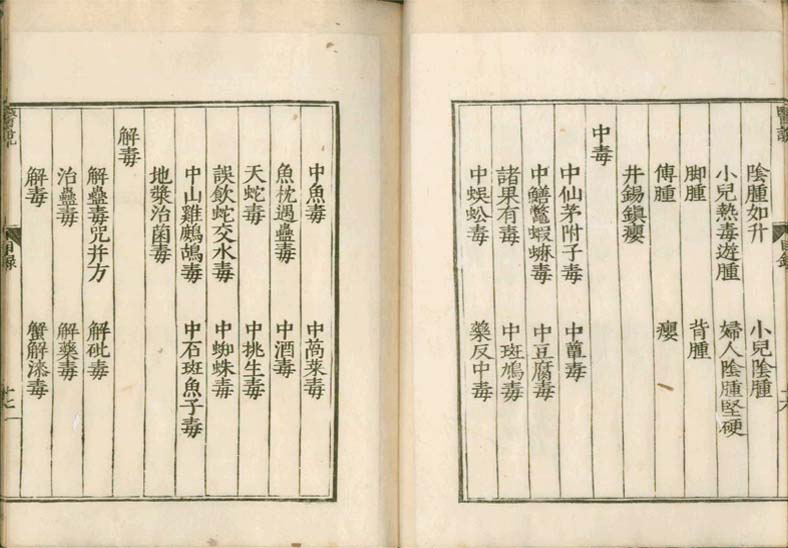 陰腫如升 小兒陰腫
小兒熱毒遊腫 婦人陰腫堅硬
脚腫 背腫
傅腫 癭
井錫鎮癭
中毒
中仙茅附子毒 中蕈毒
中鱔鼈蝦蟆毒 中豆腐毒
諸果有毒 中斑鳩毒
中蜈蚣毒 藥反中毒
中魚毒 中萵菜毒
魚枕遇蠱毒 中酒毒
天蛇毒 中挑生毒
誤飲蛇交水毒 中蜘蛛毒
中山雞鷓鴣毒 中石斑魚子毒
地漿治菌毒
解毒
解蠱毒咒并方 解砒毒
治蠱毒 解藥毒
解毒 蟹解漆毒
目錄